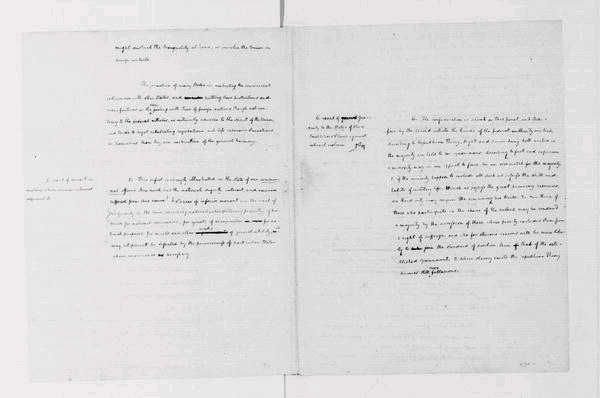 might disturb the tranquility at home, or involve the Union in
foreign contests.
The practice of many States in restricting the commercial
intercourse with other States, and putting their productions and
manufactures on the same footing with those of foreign nations, though not con-
trary to the federal articles, is certainly adverse to the spirit of the Union,
and tends to beget retaliating regulations, not less expensive & vexatious
in themselves, than they are destructive of the general harmony.
5. want of concert in
matters where common interest
requires it.
5. This defect is strongly illustrated in the state of our commer-
cial affairs. How much has the national dignity, interest, and revenue
suffered from this cause? Instances of inferior moment are the want of
uniformity in the laws concerning naturalization & literary property; of pro-
vision for national seminaries, for grants of incorporation for na-
tional purposes, for canals and other works of general utility, wch
may at present be defeated by the perverseness of particular States
whose concurrence is necessary.
6. want of guar-
anty to the States of their
Constitutions & laws against
internal violence.
6. The confederation is silent on this point and there-
fore by the second article the hands of the federal authority are tied.
According to Republican Theory, Right and power being both vested in
the majority, are held to be synonimous. According to fact and experience
a minority may in an appeal to force, be an overmatch for the majority.
1. if the minority happen to include all such as possess the skill and
habits of military life, & such as possess the great pecuniary resources,
one third only may conquer the remaining two thirds. 2. one third of
those who participate in the choice of the rulers, may be rendered
a majority by the accession of those whose poverty excludes them from
a right of suffrage, and who for obvious reasons will be more like-
ly to join the standard of sedition than that of the esta-
blished Government. 3. where slavery exists the republican Theory
becomes still more fallacious.